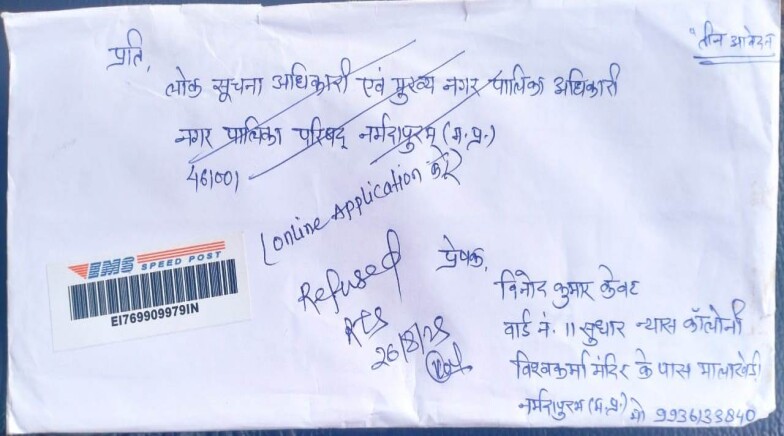 "तीन आवेदन"
प्रति,
लोक सूचना अधिकारी एवं मुख्य नगर पालिका अधिकारी
नगर पालिका परिषद् नर्मदापुरम् (म.प्र.)
461001
(online Application करे
Refused
RTS
26/8/25
EMS SPEED POST
EI769909979IN
प्रेषक,
विनोद कुमार केवट
वार्ड नं. 11 सुधार न्यास कॉलोनी
विश्वकर्मा मंदिर के पास मालाखेड़ी
नर्मदापुरम (म.प्र.) मो 9936133840